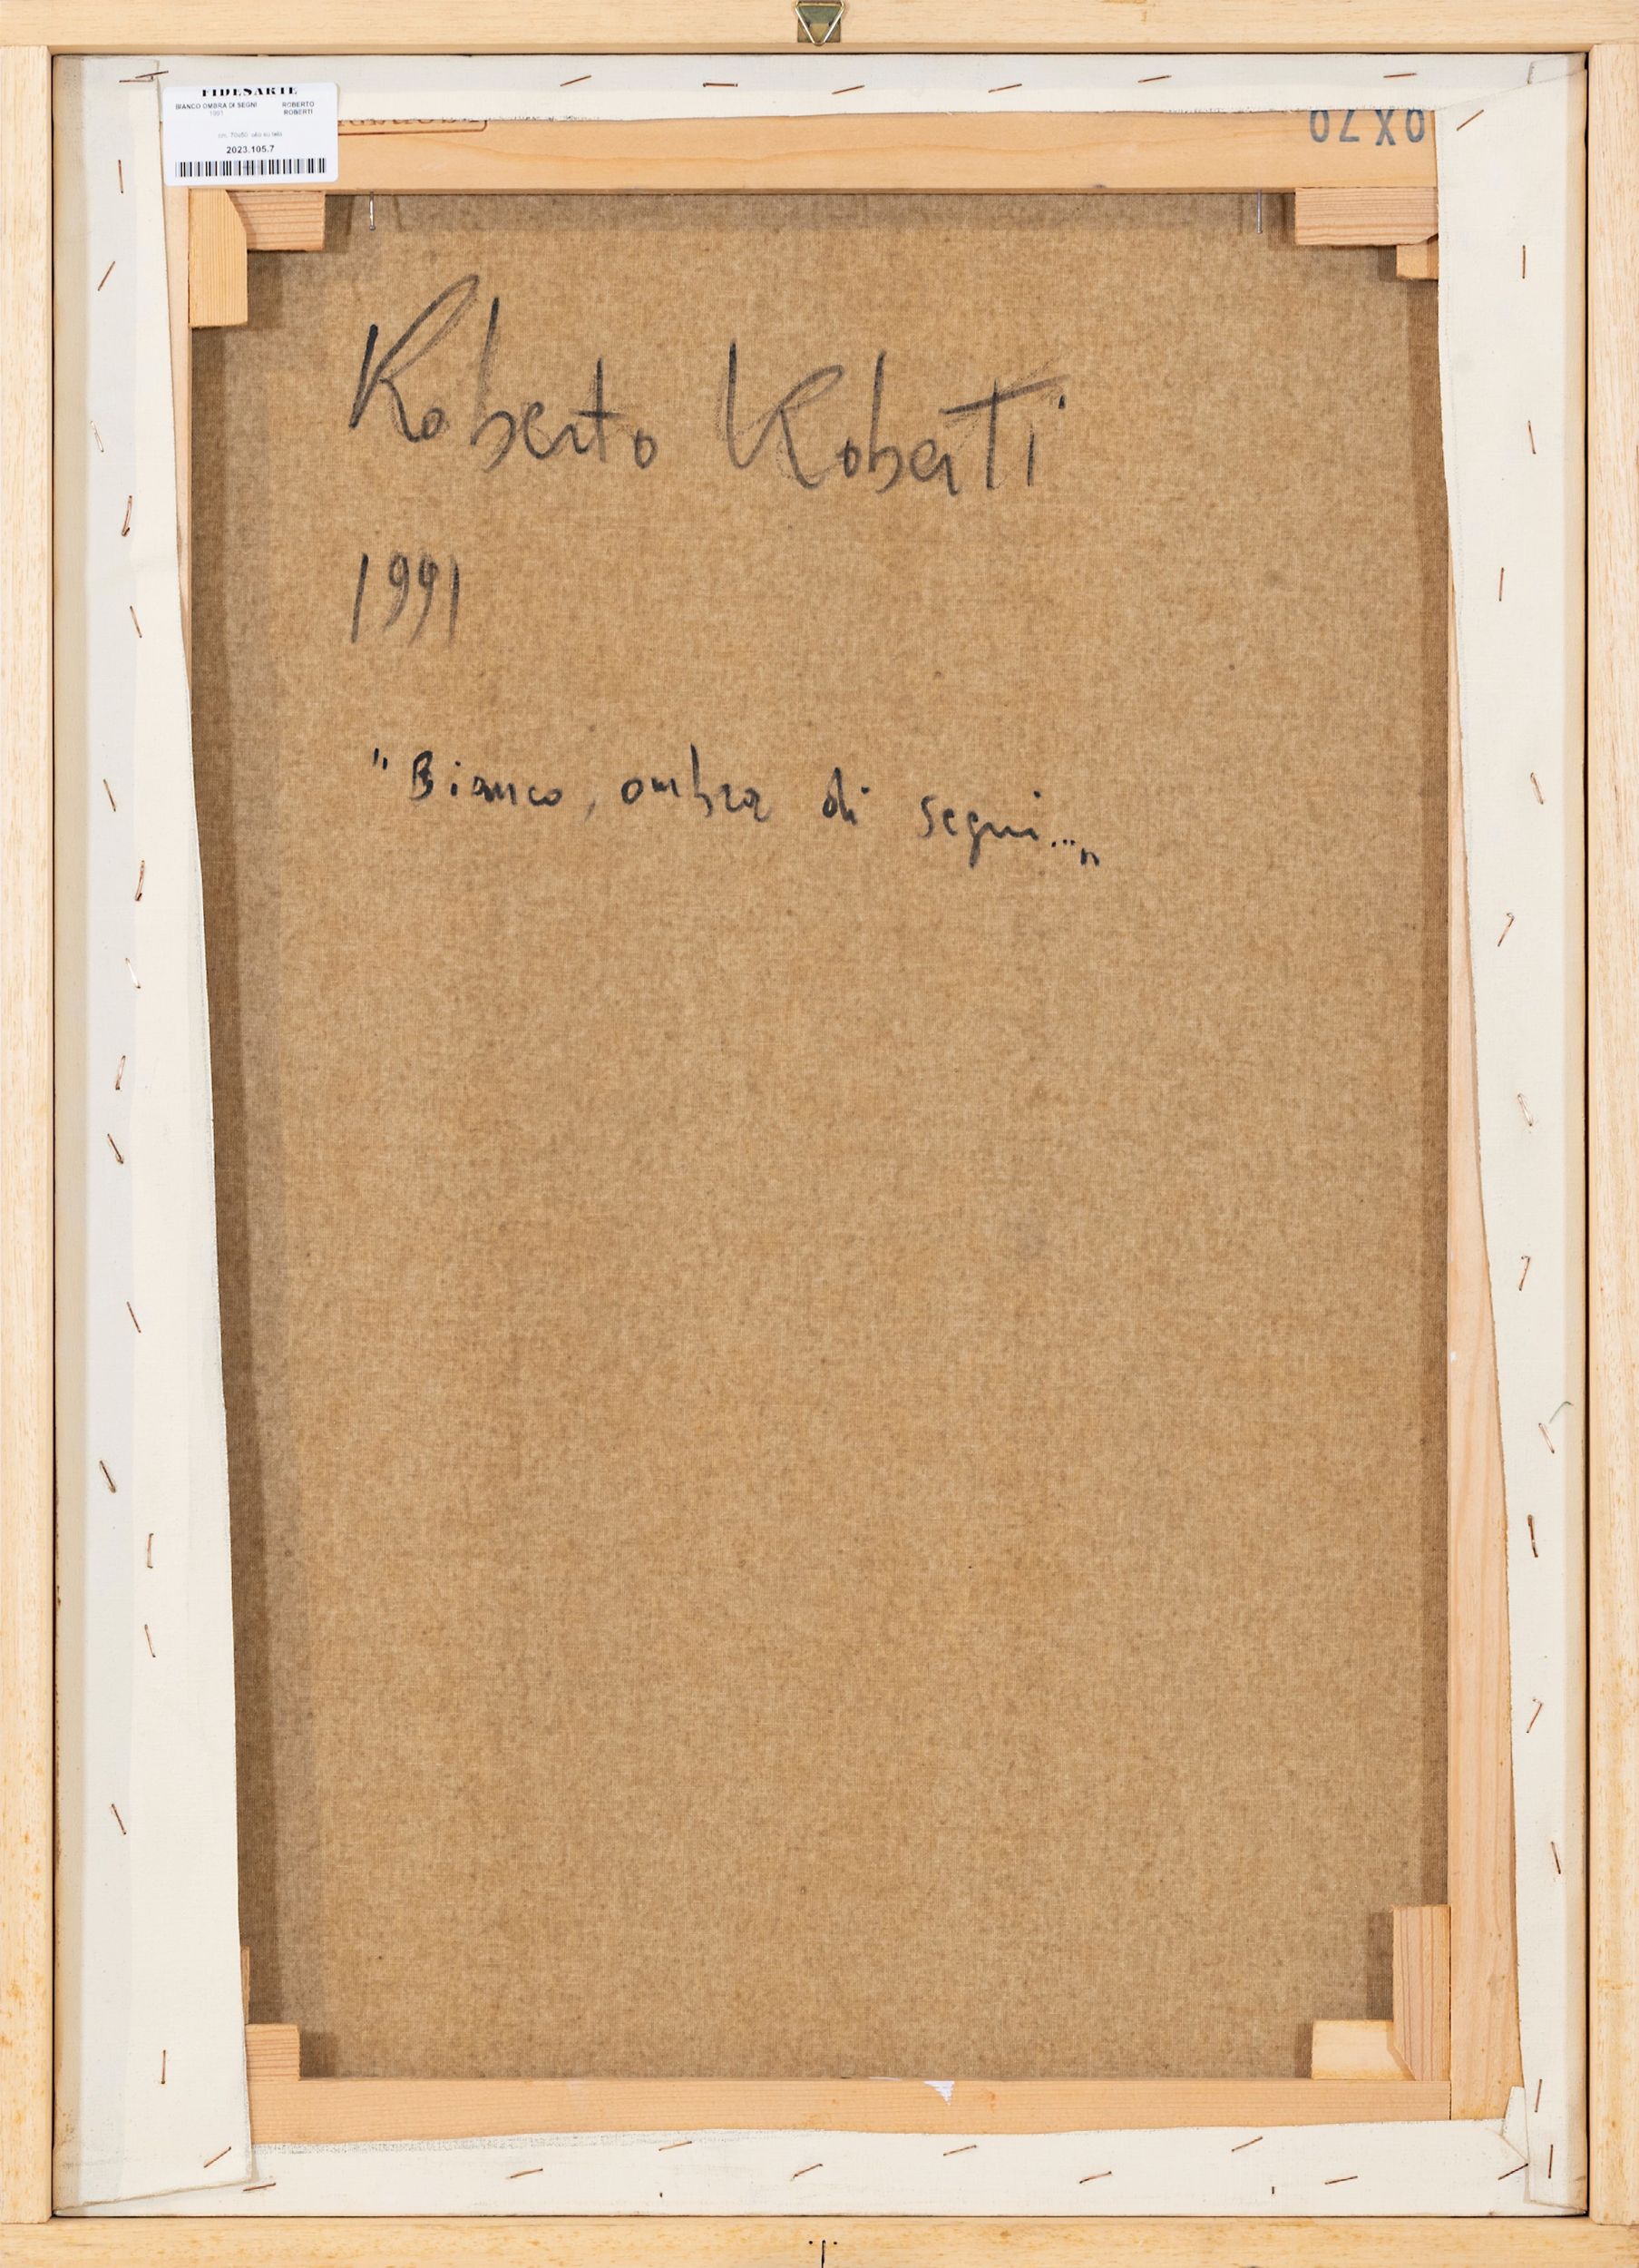 FIDESARTE
BIANCO OMBRA DI SEGNI ROBERTO
1991 ROBERTI
cm. 70x50 olio su tela
2023.105.7
0X70
Roberto Roberti
1991
"Bianco, ombra di segni..."